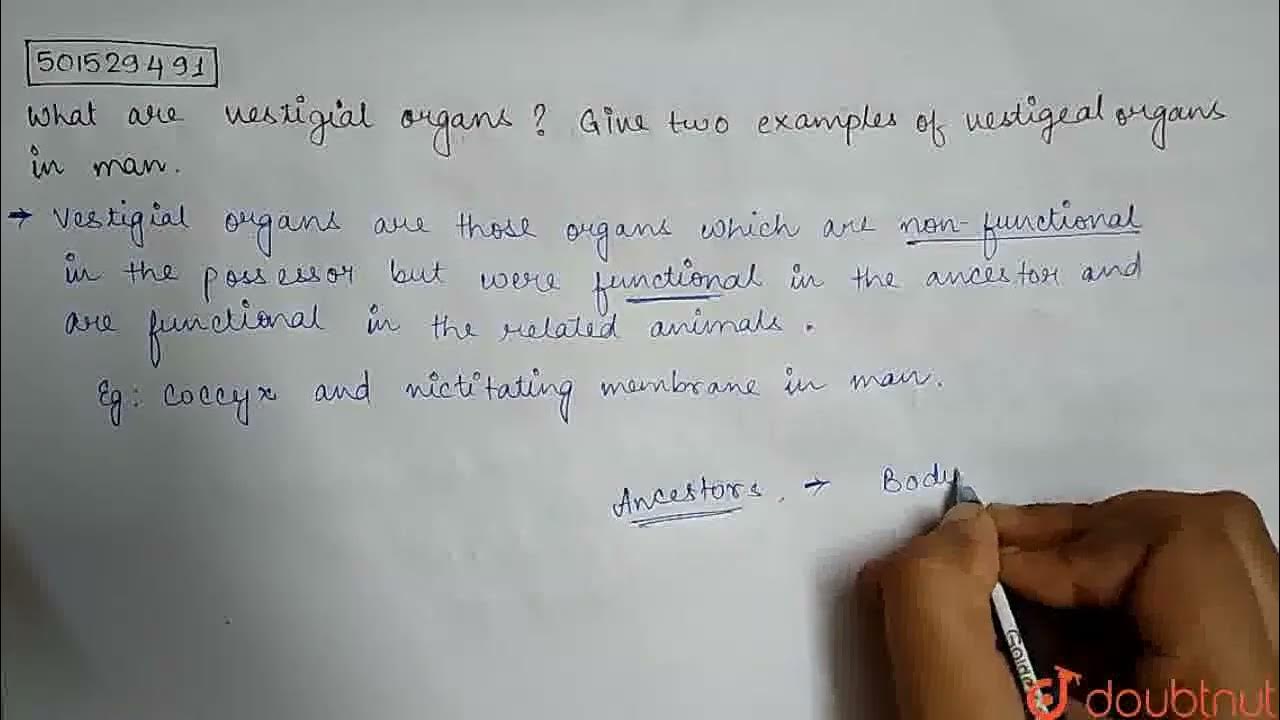 501529491
What are vestigial organs? Give two examples of vestigeal organs
in man.
→ Vestigial organs are those organs which are non-functional
in the possessor but were functional in the ancestor and
are functional in the related animals.
Eg: Coccyx and nictitating membrane in man.
Ancestors. → Body
Golde
doubtnut